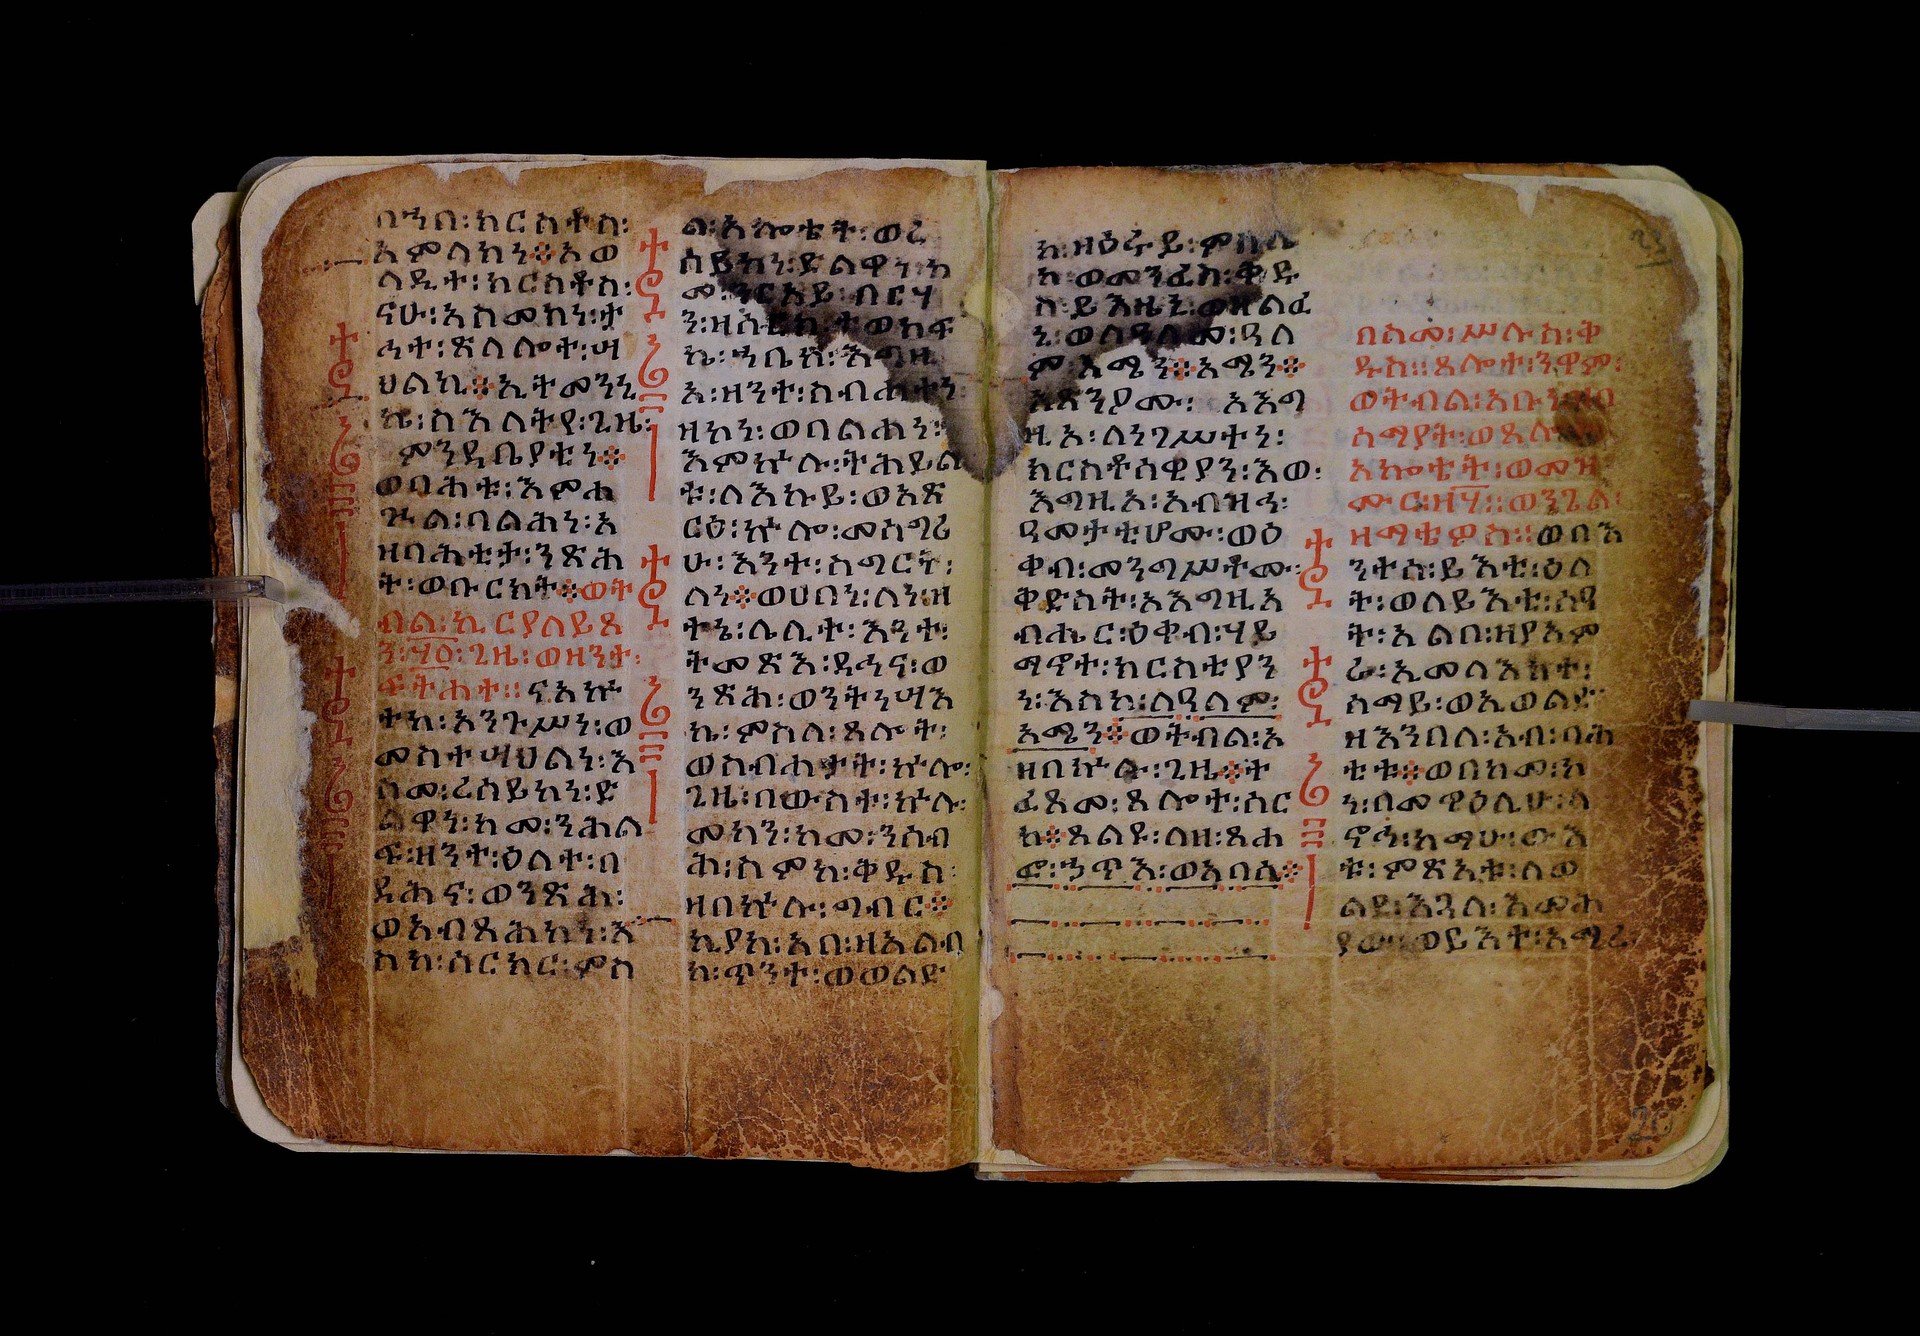 በኀበ፡ክርስቶስ፡
አምላክነ።አወ
ላዲተ፡ክርስቶስ፡
ናሁ፡አስመከነ፡ታ
ሓተ፡ጽላሎተ፡ሣ
ህልኪ።ኢትመንኒ
ኬ፡ስእለትየ፡ጊዜ፡
ምንዳቤያቲነ።
ወባሕቱ፡እምሐ
ጕል፡ባልሕነ፡አ
ዘባሕቲታ፡ንጽሕ
ት፡ወቡርክት።ወት
ብል፡ኪርያላይጾ
ን፡፵፬፡ጊዜ፡ወዘንተ፡
ፍትሐት። ናአኵ
ተከ፡አንጉሥነ፡ወ
መስተሣህልነ፡እ
ስመ፡ረሰይከነ፡ድ
ልዋነ፡ከመ፡ንሕል
ፍ፡ዘንተ፡ዕለተ፡በ
ደሕና፡ወንጽሕ፡
ወአብጻሕከነ፡እ
ስከ፡ሰርክር፡ምስ
ል፡አኰቴት፡ወረ
ሰይከነ፡ድልዋነ፡ከ
መ፡ንርአይ፡ብርሃ
ኬ፡ኀቤከ፡እግዚ
አ፡ዘንተ፡ስብሐተነ
ዘከነ፡ወባልሐነ፡
እምኵሉ፡ትሕይል
ቱ፡ለእኩይ፡ወአጽ
ርዕ፡ኵሎ፡መስግሪ
ሁ፡እንተ፡ስግርት፡
ለነ።ወሀበነ፡ለነ፡ዘ
ተኔ፡ሌሊት፡እዒተ፡
ትመጽእ፡ደሓና፡ወ
ንጽሕ፡ወንትነሣእ
ኬ፡ምስለ፡ጸሎት፡
ወስብሐታት፡ኵሎ፡
ጊዜ፡በውስተ፡ኵሉ፡
መካን፡ከመ፡ንስብ
ሕ፡ስምከ፡ቅዱስ፡
ዘበኵሉ፡ግብር።
ኪያከ፡አበ፡ዘአልብ
ከ፡ጥንተ፡ወወልድ
ከ፡ዘዕሩይ፡ምስሌ
ከ፡ወመንፈስ፡ቅዱ
ስ፡ይእዜኒ፡ወዘልፈ
ኒ፡ወለዓለመ፡ዓለ
ም፡አሜን።አሜን።
ዚአ፡ለነገሥተነ፡
ክርስቶሳዊያን፡እወ፡
እግዚአ፡አብዝኅ፡
ዓመታቲሆሙ፡ወዕ
ቀብ፡መንግሥቶሙ፡
ቅድስት፡አእግዚአ
ብሔር፡ዕቀብ፡ሃይ
ማኖተ፡ክርስቲያን
ነ፡እስከ፡ለዓለም፡
አሜን።ወትብል፡አ
ዘበኵሉ፡ጊዜ።ት
ፈጸመ፡ጸሎተ፡ሰር
ክ።ጸልዩ፡ለዘ፡ጸሐ
ፎ፡ኃጥእ፡ወአባሲ።
በስመ፡ሥሉስ፡ቅ
ዱስ።ጸሎተ፡ንዋም፡
ወትብል፡አቡነ፡ዘበ
ሰማያት፡ወጸሎተ
አኰቴት፡ወመዝ
ሙር፡ዘ፶።ወንጌል፡
ዘማቴዎስ።ወበእ
ንተሰ፡ይእቲ፡ዕለ
ት፡ወለይእቲ፡ሰዓ
ት፡አልቦ፡ዘያአም
ራ፡ኢመላእክተ፡
ሰማይ፡ወኢወልድ
ዘእንበለ፡አብ፡ባሕ
ቲቱ።ወበከመ፡ኮ
ነ፡በመዋዕሊሁ፡ለ
ኖኅ፡ከማሁ፡ውእ
ቱ፡ምጽአቱ፡ለወ
ልደ፡እጓለ፡እመሕ
ያው፡ወይእተ፡አሚረ